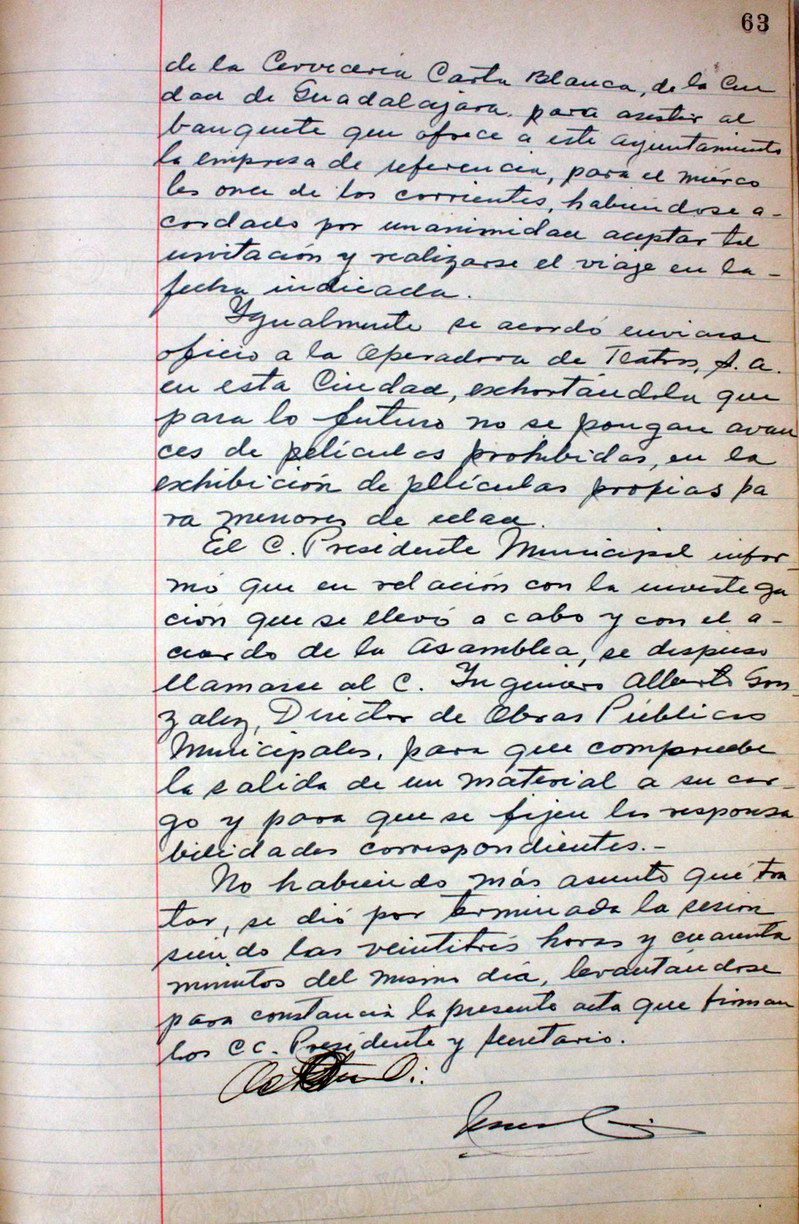 63
de la Cervecería Carta Blanca, de la Ciu
dad de Guadalajara, para asistir al
banquete que ofrece a este ayuntamiento
la empresa de referencia, para el miérco
les once de los corrientes, habiéndose a-
cordado por unanimidad aceptar tal
invitación y realizarse el viaje en la-
fecha indicada.
Igualmente se acordó enviarse
oficio a la Operadora de Teatros, S. a.
en esta Ciudad, exhortándola que
para lo futuro no se pongan avan
ces de películas prohibidas, en la
exhibición de películas propias pa
ra menores de edad.
El C. Presidente Municipal infor-
mó que en relación con la investiga
ción que se llevó a cabo y con el a-
cuerdo de la Asamblea, se dispuso
llamarse al C. Ingeniero Alberto Gon-
zalez, Director de Obras Públicas
Municipales, para que compruebe
la salida de un material a su car-
go y para que se fijen las responsa
bilidades correspondientes.-
No habiendo más asunto qué tra
tar, se dió por terminada la sesión
siendo las veintitrés horas y cuarenta
minutos del mismo día, levantándose
para constancia la presente acta que firman
los CC. Presidente y Secretario.